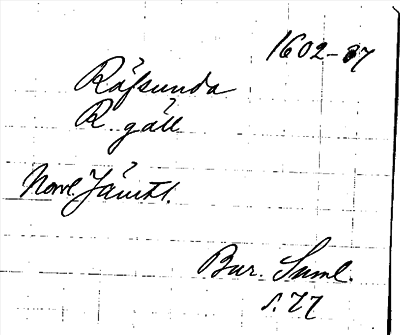 1602-37
Räfsunda
R. gäll
Norrl. Jämtl.
Bur. Suml.
s. 77